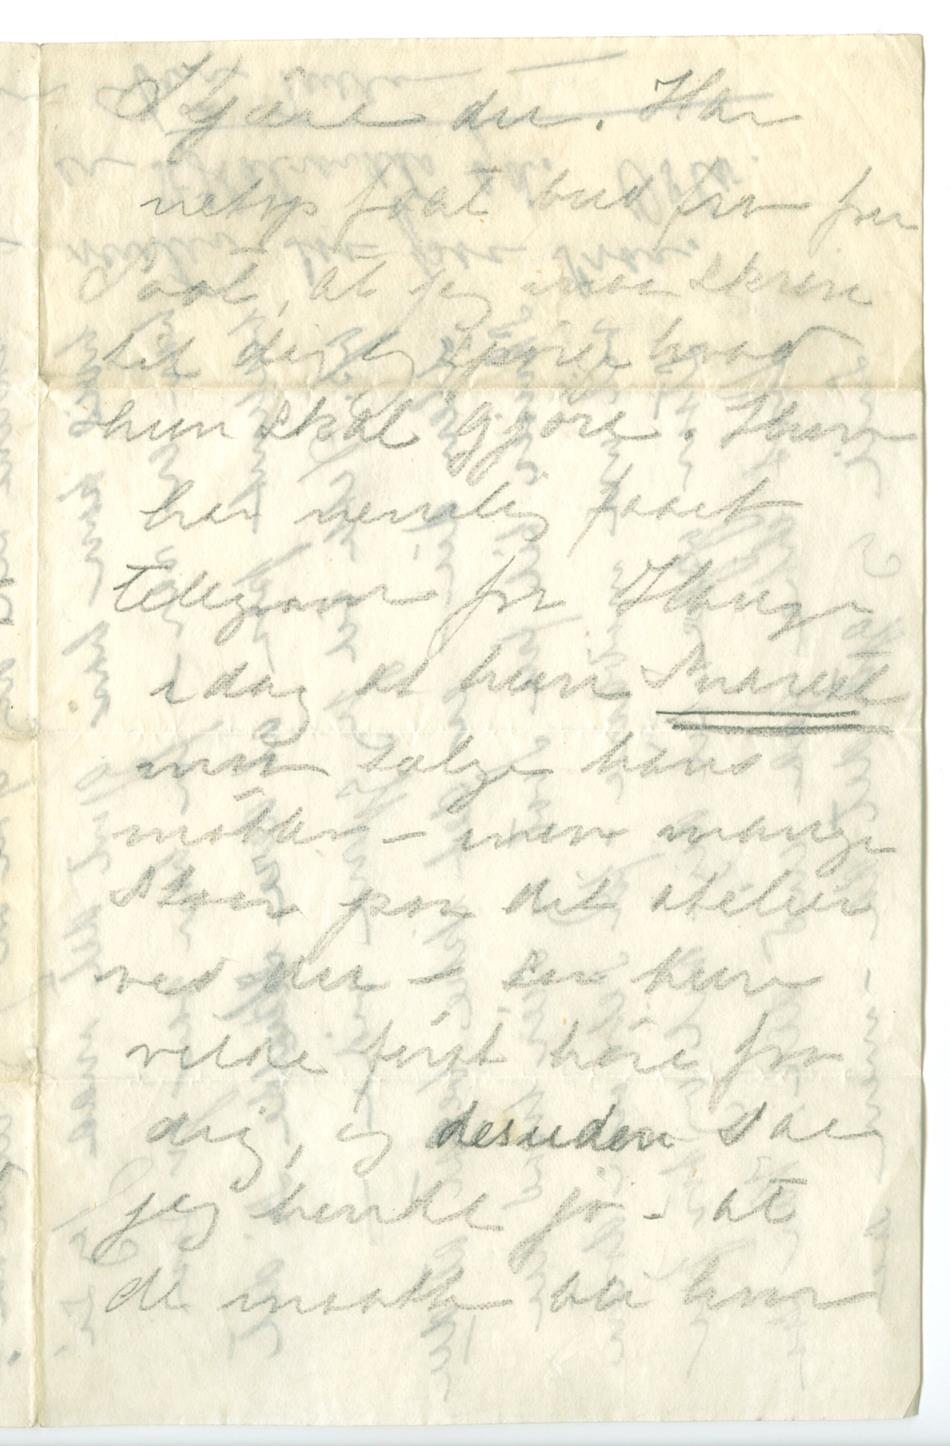 Kjære du. Har
netop faat bud fra fru
at jeg maa skrive
til dig og spørge hvad
hun skal gjøre. Hun
har nemlig faaet
telegram fra Hauge
idag at hun snarest
må sælge hans
møbler – men mange
staar paa dit atelier
ved der – saa hun
vilde først høre fra
dig, og desuden sae
jeg hende jo – at
de maatte bli hvor